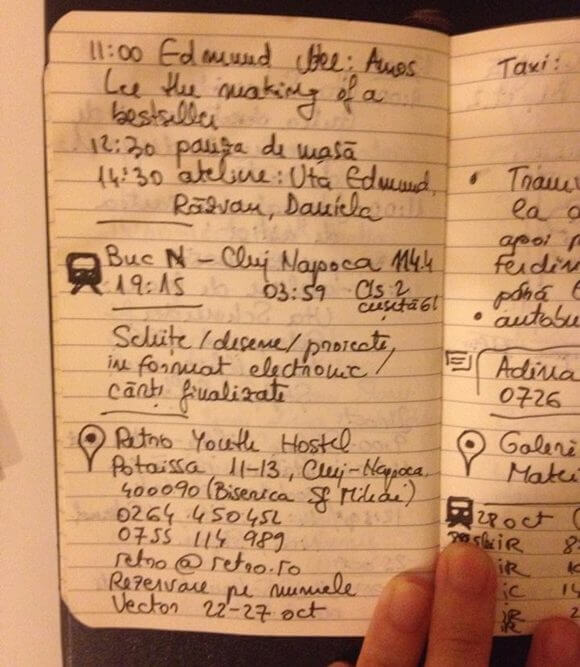 11:00 Edmund Jacobson: Amos
Lee the making of a
bestseller
12:30 pauza de masă
14:30 ateliere: Uta Edmund,
Răzvan, Daniela
Buc N - Cluj Napoca 114.4
19:15 03:59 Cls 2
cușetă 6l
Schițe / desene / proiecte,
in format electronic /
cărți finalizate
Retro Youth Hostel
Potaissa 11-13, Cluj-Napoca,
400090 (Biserica Sf Mihai)
0264 450 452
0755 114 989
retro@retro.ro
Rezervare pe numele
Vector 22-27 oct
Taxi:
Tramv
la
apoi
Ferdin
până
autobu
Adina
0726
Galeri
Matei
28 oct
IR 8
IR 1
IC 14
IR 2
IR